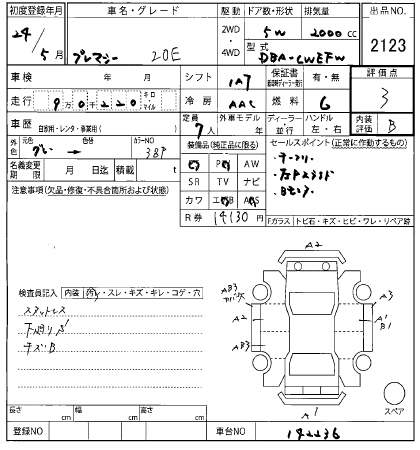 初度登録年月 車名・グレード 駆動 ドア数・形状 排気量 出品NO.
24年 5月 プレマシー 20E 2WD・4WD 5W 2000cc 2123
型式 DBA-CWEFW
車検 年 月 シフト 1A7 保証書 有・無 評価点 3
走行 9万0千220 キロ マイル 冷房 AAC 燃料 G
車歴 自家用・レンタ・修業用( ) 定員 7人 外車モデル 年 ディーラー 並行 ハンドル 左・右 内装評価 B
外色 元色 グレー → 色替 カラーNO 38P
装備品(純正品に限る) セールスポイント(正常に作動するもの)
名義変更期限 月 日 積載 t
SR TV ナビ
AW
注意事項(欠品・修復・不具合箇所および状態)
カワ
R券 14130円
Fガラス トビ石・キズ・ヒビ・ワレ・リペア跡
A2
検査員記入 内装 汚・スレ・キズ・キレ・コゲ・穴
スタットレス
下廻りサビ
キズB
AB3
A3
A2
A1
B1
AB3
A1
スペア
長さ cm 幅 cm 高さ cm
登録NO 車台NO 142236